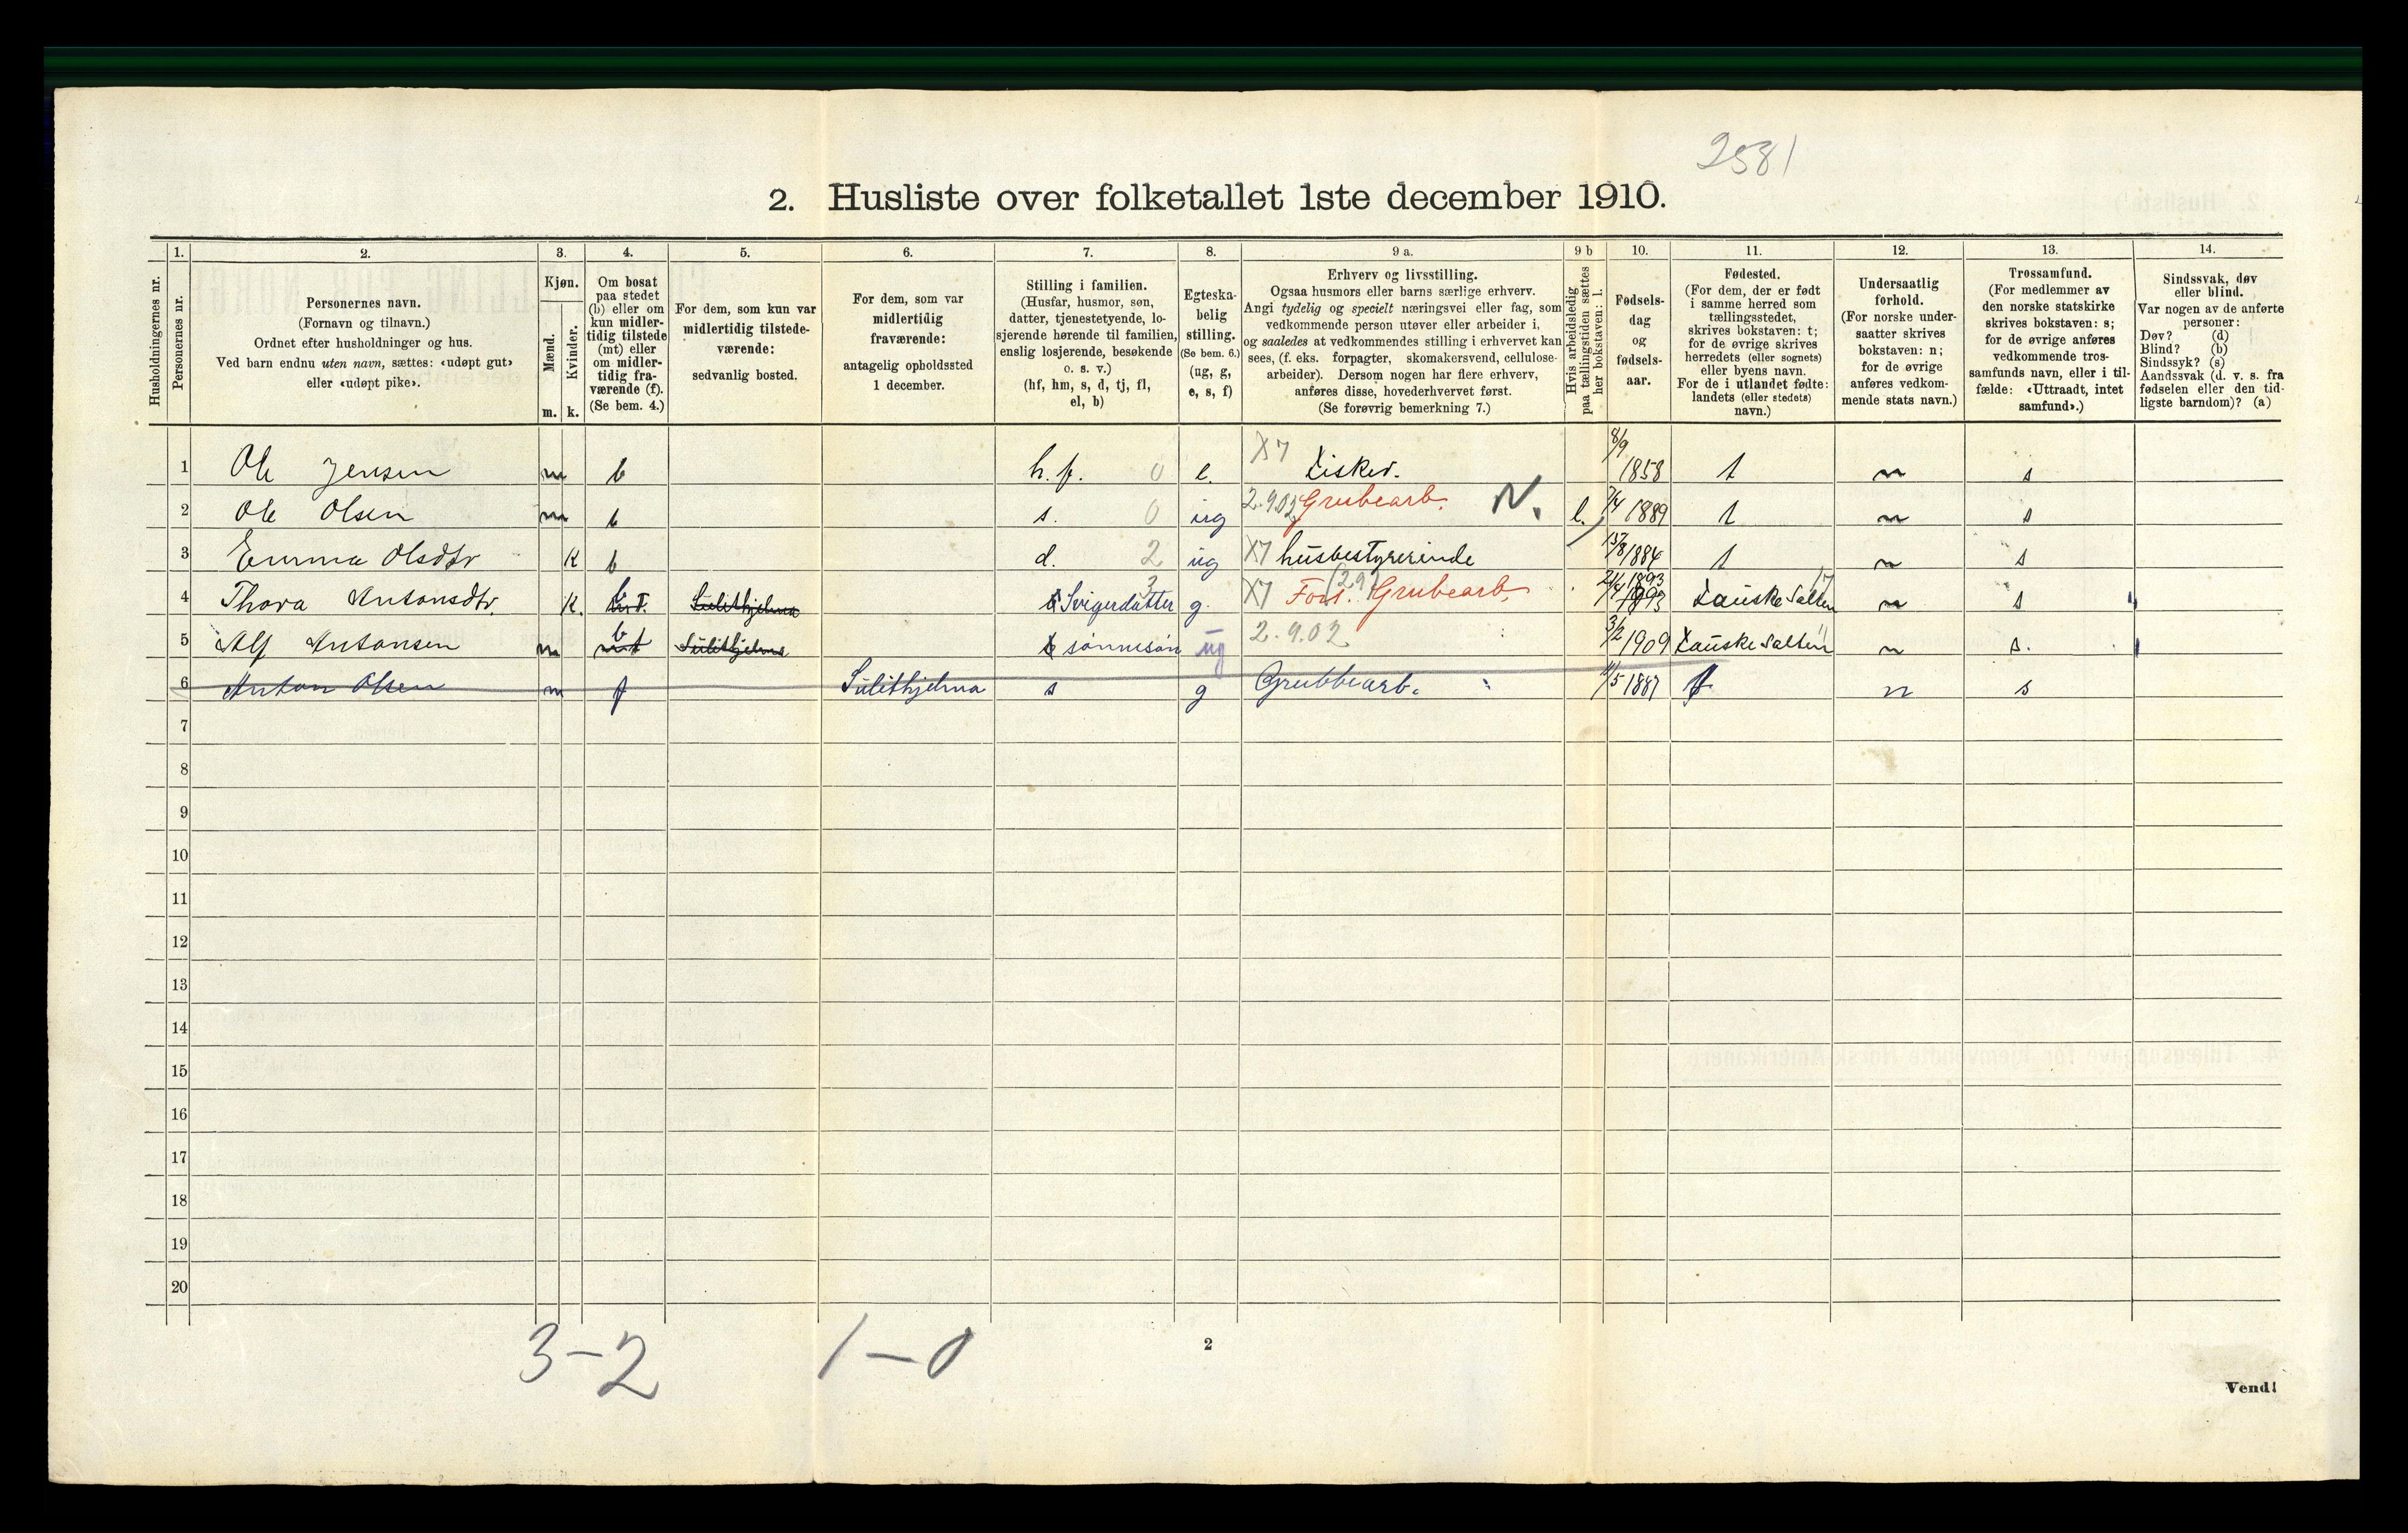 2581
2. Husliste over folketallet 1ste december 1910.
Husholdningernes nr.
1. Personernes nr.
2. Personernes navn. (Fornavn og tilnavn.) Ordnet efter husholdninger og hus. Ved barn endnu uten navn, sættes: «udøpt gut» eller «udøpt pike».
3. Kjøn. Mænd. m. Kvinder. k.
4. Om bosat paa stedet (b) eller om kun midlertidig tilstede (mt) eller om midlertidig fraværende (f). (Se bem. 4.)
5. For dem, som kun var midlertidig tilstedeværende: sedvanlig bosted.
6. For dem, som var midlertidig fraværende: antagelig opholdssted 1 december.
7. Stilling i familien. (Husfar, husmor, søn, datter, tjenestetyende, losjerende hørende til familien, enslig losjerende, besøkende o. s. v.) (hf, hm, s, d, tj, fl, el, b)
8. Egteskabelig stilling. (Se bem. 6.) (ug, g, e, s, f)
9 a. Erhverv og livsstilling. Ogsaa husmors eller barns særlige erhverv. Angi tydelig og specielt næringsvei eller fag, som vedkommende person utøver eller arbeider i, og saaledes at vedkommendes stilling i erhvervet kan sees, (f. eks. forpagter, skomakersvend, cellulosearbeider). Dersom nogen har flere erhverv, anføres disse, hovederhvervet først. (Se forøvrig bemerkning 7.)
9 b Hvis arbeidsledig paa tællingstiden sættes her bokstaven: l.
10. Fødselsdag og fødselsaar.
11. Fødested. (For dem, der er født i samme herred som tællingsstedet, skrives bokstaven: t; for de øvrige skrives herredets (eller sognets) eller byens navn. For de i utlandet fødte: landets (eller stedets) navn.)
12. Undersaatlig forhold. (For norske undersaatter skrives bokstaven: n; for de øvrige anføres vedkommende stats navn.)
13. Trossamfund. (For medlemmer av den norske statskirke skrives bokstaven: s; for de øvrige anføres vedkommende trossamfunds navn, eller i tilfælde: «Uttraadt, intet samfund».)
14. Sindssvak, døv eller blind. Var nogen av de anførte personer: Døv? (d) Blind? (b) Sindssyk? (s) Aandssvak (d. v. s. fra fødselen eller den tidligste barndom)? (a)
1 Ole Jensen m b h. f. 0 e. X7 Fisker. 8/9 1858 t n s
2 Ole Olsen m b s. 0 ug 2.902 Grubearb. N. l. 7/4 1889 t n s
3 Emma Olsdtr k b d. 2 ug X7 husbestyrerinde 13/8 1884 t n s
4 Thora Antonsdtr. k. b Sulithjelma Svigerdatter 3 g. X7 Fors. Grubearb. 21/4 1893 Fauske Salten 17 n s
5 Alf Antonsen m b mt Sulithjelma sønnesøn ug 2.9.02 3/2 1909 Fauske Salten 11 n s.
6 Anton Olsen m f Sulithjelma s g Grubbearb. 11/5 1887 t n s
7
8
9
10
11
12
13
14
15
16
17
18
19
20
3-2 1-0
2
Vend!